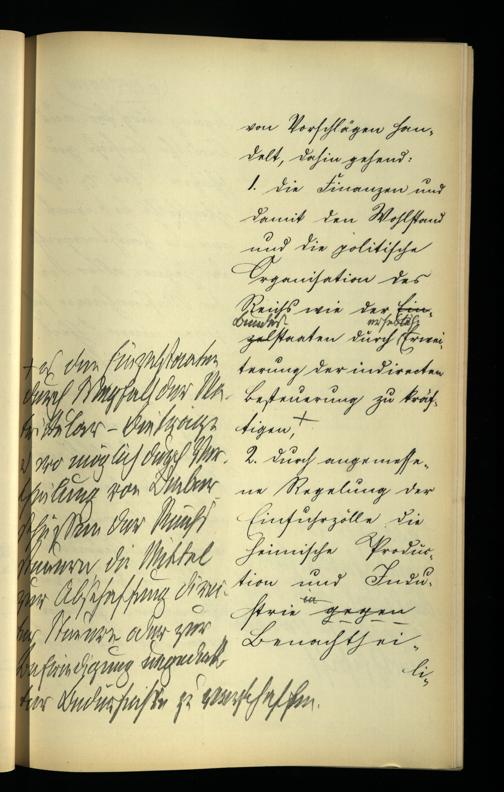 von Vorschlägen han-
delt, dahin gehend:
1. die Finanzen und
damit den Wohlstand
und die politische
Organisation des
Reichs wie der Ein-
Bundes-
zelstaaten durch Erwei-
terung der indirecten
Besteuerung zu kräf-
tigen,+
2. durch angemesse-
ne Regelung der
Einfuhrzölle die
heimische Produc-
tion und Indu-
strie gegen
Benachthei-
li-
+ den Einzelstaaten
durch Wegfall der Ma-
trikular-Beiträge
wo möglich durch Ver-
theilung von Ueber-
schüssen der Reichs
steuern die Mittel
zur Abschaffung direk-
ter Steuern oder zur
Befriedigung ungedeck-
ter Bedürfnisse zu verschaffen.